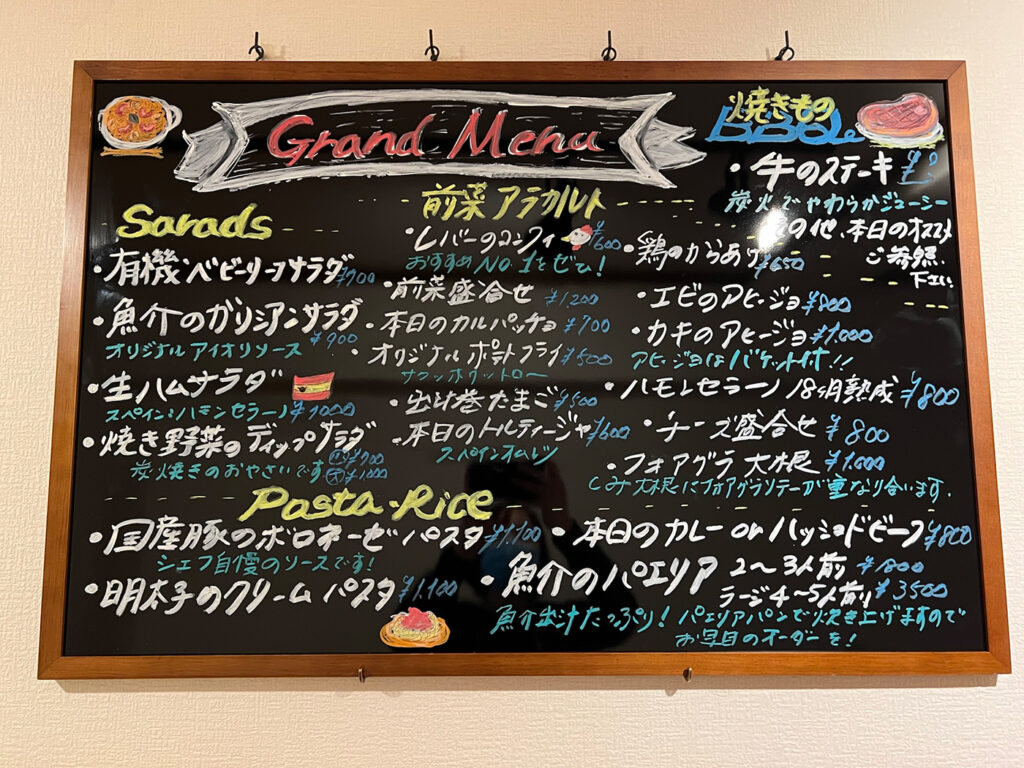 Grand Menu
Sarads
・有機ベビーリーフサラダ ¥700
・魚介のガリシアンサラダ ¥900
オリジナルアイオリソース
・生ハムサラダ
スペイン:ハモンセラーノ ¥1000
・焼き野菜のディップサラダ
炭焼きのおやさいです ¥700
¥1,000
前菜アラカルト
・レバーのコンフィ ¥600
おすすめNo.1をぜひ!
・前菜盛合せ ¥1,200
・本日のカルパッチョ ¥700
・オリジナルポテトフライ ¥500
・出汁巻たまご ¥500
・本日のトルティージャ ¥600
スペインオムレツ
・鶏のからあげ ¥650
・エビのアヒージョ ¥800
・カキのアヒージョ ¥1,000
アヒージョはバケット付!!
・ハモンセラーノ 18ヶ月熟成 ¥800
・チーズ盛合せ ¥800
・フォアグラ大根 ¥1,000
しみ大根にフォアグラソテーが重なり合います。
焼きもの
BBQ
・牛のステーキ ¥?
炭火でやわらかジューシー
その他、本日のオススメ
ご参照
下さい
Pasta・Rice
・国産豚のボロネーゼパスタ ¥1,100
シェフ自慢のソースです!
・明太子のクリームパスタ ¥1,100
・本日のカレー or ハッシュドビーフ ¥800
・魚介のパエリア 2〜3人前 ¥1800
ラージ4〜5人前 ¥3500
魚介出汁たっぷり!パエリアパンで炊き上げますので
お早目のオーダーを!